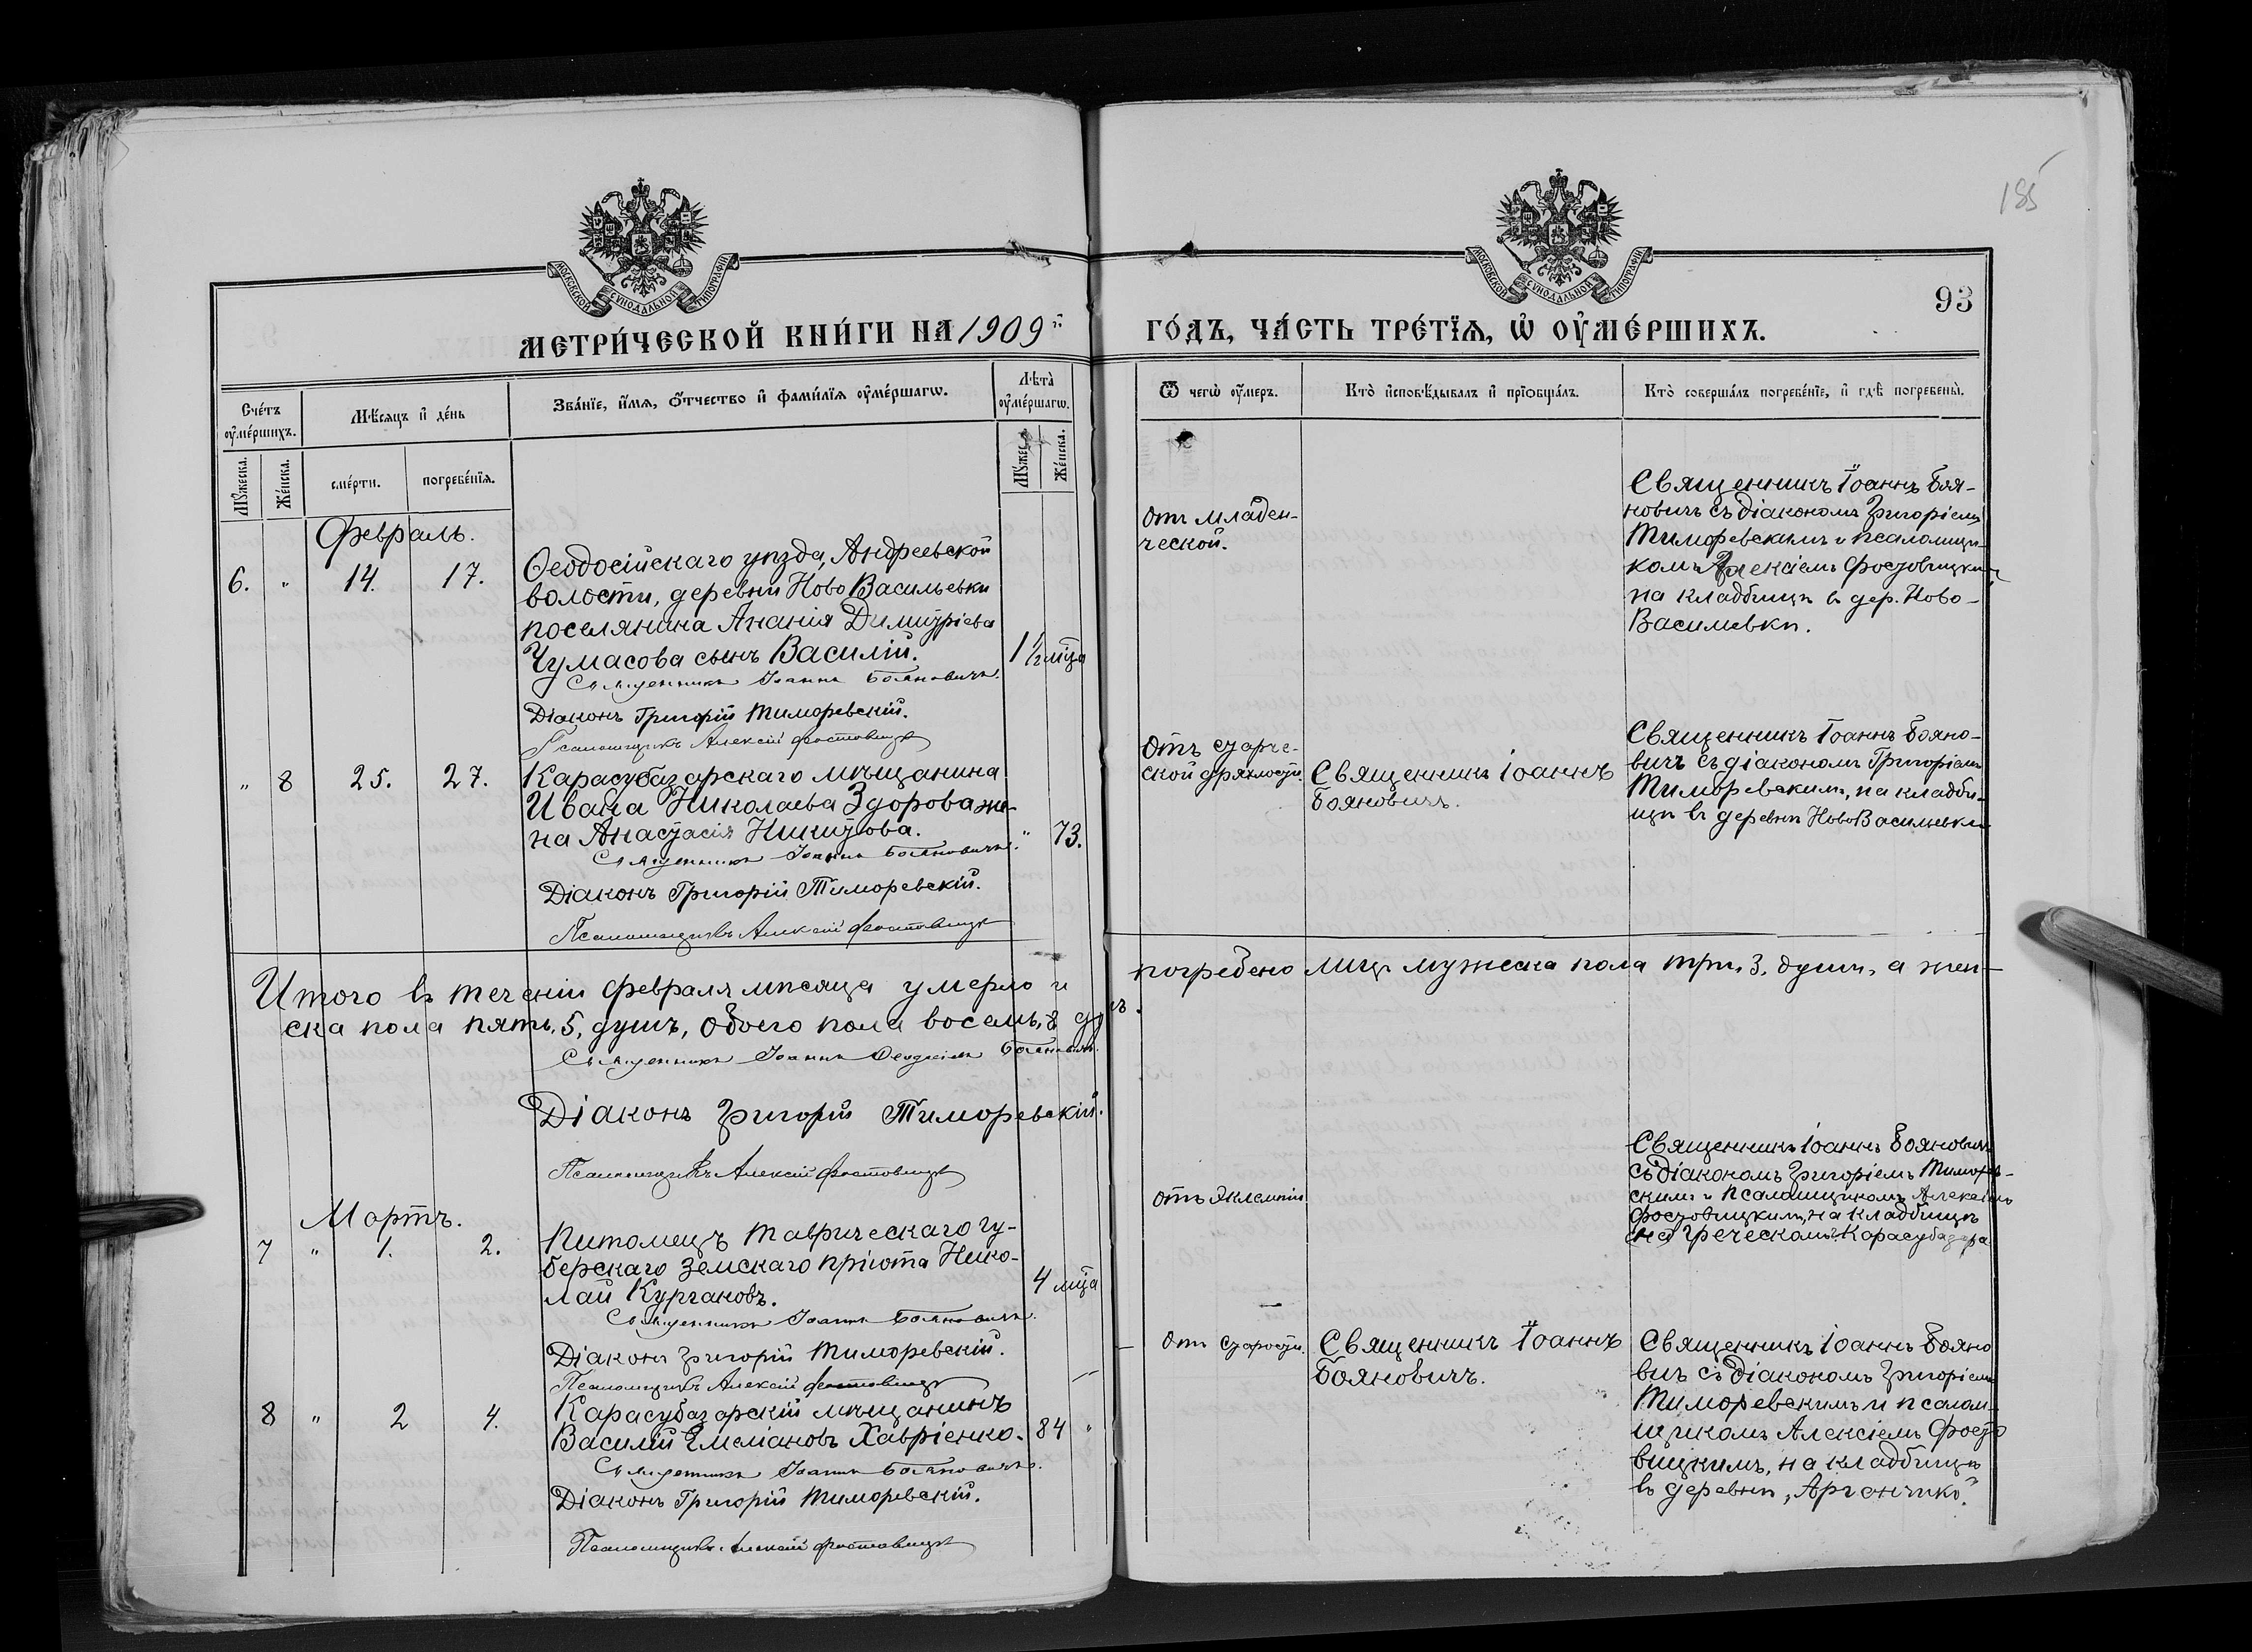 185
93
МОСКОВСКОЙ СѴНОДАЛЬНОЙ ТИПОГРАФІИ
МОСКОВСКОЙ СѴНОДАЛЬНОЙ ТИПОГРАФІИ
МЕТРИ́ЧЕСКОЙ КНИ́ГИ НА 1909й
ГО́ДЪ, ЧА́СТЬ ТРЕ́ТЇѦ, Ѡ҆ ОУ҆МЕ́РШИХЪ.
Сче́тъ оу҆ме́ршихъ.
Мѣ́сяцъ и҆ де́нь
Зва́нїе, и҆́мѧ, ѻ҆́тчество и҆ фами́лїѧ оу҆ме́ршагѡ.
Лѣта̀ оу҆ме́ршагѡ.
Мꙋ́жеска.
Же́нска.
сме́рти.
погребе́нїѧ.
Мꙋ́жес
Же́нска.
Ѿ чегѡ̀ оу҆́меръ.
Кто̀ и҆сповѣ́дывалъ и҆ прїобща́лъ.
Кто̀ соверша́лъ погребе́нїе, и҆ гдѣ̀ погребены̀.
Февраль.
6. " 14. 17.
Ѳеодосійскаго уѣзда, Андреевской
волости, деревни Ново Васильевки
поселянина Ананія Димитріева
Чумасова сынъ Василій.
1½ мца
Священникъ Іоаннъ Бояновичъ.
Діаконъ Григорій Тиморевскій.
Псаломщикъ Алексій Фостовицкій
отъ младен-
ческой.
Священникъ Іоаннъ Боя-
новичъ съ діакономъ Григоріемъ
Тиморевскимъ и псаломщи-
комъ Алексіемъ Фостовицким
на кладбищѣ въ дер. Ново-
Васильевкѣ.
" 8 25. 27.
Карасубазарскаго мѣщанина
Ивана Николаева Здорова же-
на Анастасія Никитова.
" 73.
Священникъ Іоаннъ Бояновичъ.
Діаконъ Григорій Тиморевскій.
Псаломщикъ Алексій Фостовицкій
Отъ старче-
ской дряхлости.
Священникъ Іоаннъ
Бояновичъ.
Священникъ Іоаннъ Бояно-
вичъ съ діакономъ Григоріемъ
Тиморевскимъ, на кладби-
щѣ въ деревнѣ НовоВасильевкѣ
Итого въ теченіи февраля мѣсяца умерло и погребено лицъ мужеска пола три, 3, души, а жен-
ска пола пять, 5, душъ, обоего пола восемь, 8 душъ.
Священникъ Іоаннъ Бояновичъ.
Діаконъ Григорій Тиморевскій.
Псаломщикъ Алексій Фостовицкій
Мартъ.
7 " 1. 2.
Питомецъ Таврическаго гу-
берскаго земскаго пріюта Нико-
лай Кургановъ.
4 мца
Священникъ Іоаннъ Бояновичъ.
Діаконъ Григорій Тиморевскій.
Псаломщикъ Алексій Фостовицкій
отъ эклемпіи
Священникъ Іоаннъ Бояновичъ
съ діакономъ Григоріемъ Тиморев-
скимъ и псаломщикомъ Алексіемъ
Фостовицкимъ, на кладбищѣ
на Греческомъ г. Карасубазара
8 " 2 4.
Карасубазарскій мѣщанинъ
Василій Емеліановъ Хавріенко.
84 "
Священникъ Іоаннъ Бояновичъ.
Діаконъ Григорій Тиморевскій.
Псаломщикъ Алексій Фостовицкій
Отъ старости.
Священникъ Іоаннъ
Бояновичъ.
Священникъ Іоаннъ Бояно
вичъ съ діакономъ Григоріемъ
Тиморевскимъ и псалом-
щикомъ Алексіемъ Фосто
вицкимъ, на кладбищѣ
въ деревнѣ „Аргончикъ".